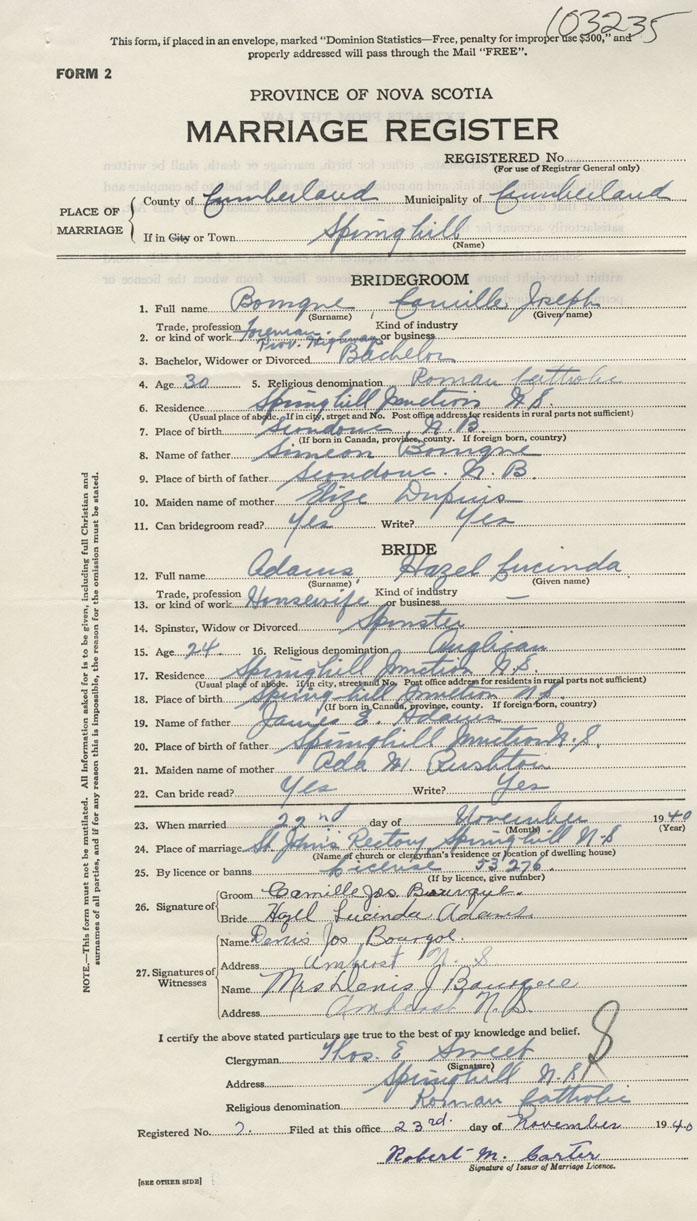 103235
This form, if placed in an envelope, marked "Dominion Statistics—Free, penalty for improper use $300," and
properly addressed will pass through the Mail "FREE".
FORM 2
PROVINCE OF NOVA SCOTIA
MARRIAGE REGISTER
REGISTERED No.
(For use of Registrar General only)
PLACE OF MARRIAGE
County of Cumberland Municipality of Cumberland
If in City or Town Springhill
(Name)
BRIDEGROOM
1. Full name Bourque, Camille Joseph
(Surname) (Given name)
Trade, profession Foreman Kind of industry
2. or kind of work Prov. Highways or business
3. Bachelor, Widower or Divorced Bachelor
4. Age 30 5. Religious denomination Roman Catholic
6. Residence Springhill Junction N.S.
(Usual place of abode. If in city, street and No. Post office address for residents in rural parts not sufficient)
7. Place of birth Scoudouc, N.B.
(If born in Canada, province, county. If foreign born, country)
8. Name of father Simeon Bourque
9. Place of birth of father Scoudouc. N.B.
10. Maiden name of mother Elize Dupuis
11. Can bridegroom read? Yes Write? Yes
BRIDE
12. Full name Adams, Hazel Lucinda
(Surname) (Given name)
Trade, profession Kind of industry
13. or kind of work Housewife or business —
14. Spinster, Widow or Divorced Spinster
15. Age 24. 16. Religious denomination Anglican
17. Residence Springhill Junction N.S.
(Usual place of abode. If in city, street and No. Post office address for residents in rural parts not sufficient)
18. Place of birth Springhill Junction N.S.
(If born in Canada, province, county. If foreign born, country)
19. Name of father James E. Adams
20. Place of birth of father Springhill Junction N.S.
21. Maiden name of mother Ada M. Rushton
22. Can bride read? Yes Write? Yes
23. When married 22nd day of November 1940
(Month) (Year)
24. Place of marriage St. John's Rectory Springhill N.S
(Name of church or clergyman's residence or location of dwelling house)
25. By licence or banns License 53276.
(If by licence, give number)
26. Signature of
Groom Camille Jos Bourque.
Bride Hazel Lucinda Adams
27. Signatures of Witnesses
Name Denis Jos Bourque.
Address Amherst N. S
Name Mrs Denis J Bourque
Address Amherst N.S.
I certify the above stated particulars are true to the best of my knowledge and belief.
Clergyman Thos. E Sweet
(Signature)
Address Springhill N.S
Religious denomination Roman Catholic
Registered No. 7. Filed at this office 23rd. day of November 1940
Robert M. Carter
Signature of Issuer of Marriage Licence.
[SEE OTHER SIDE]
NOTE.—This form must not be mutilated. All information asked for is to be given, including full Christian and
surnames of all parties, and if for any reason this is impossible, the reason for the omission must be stated.